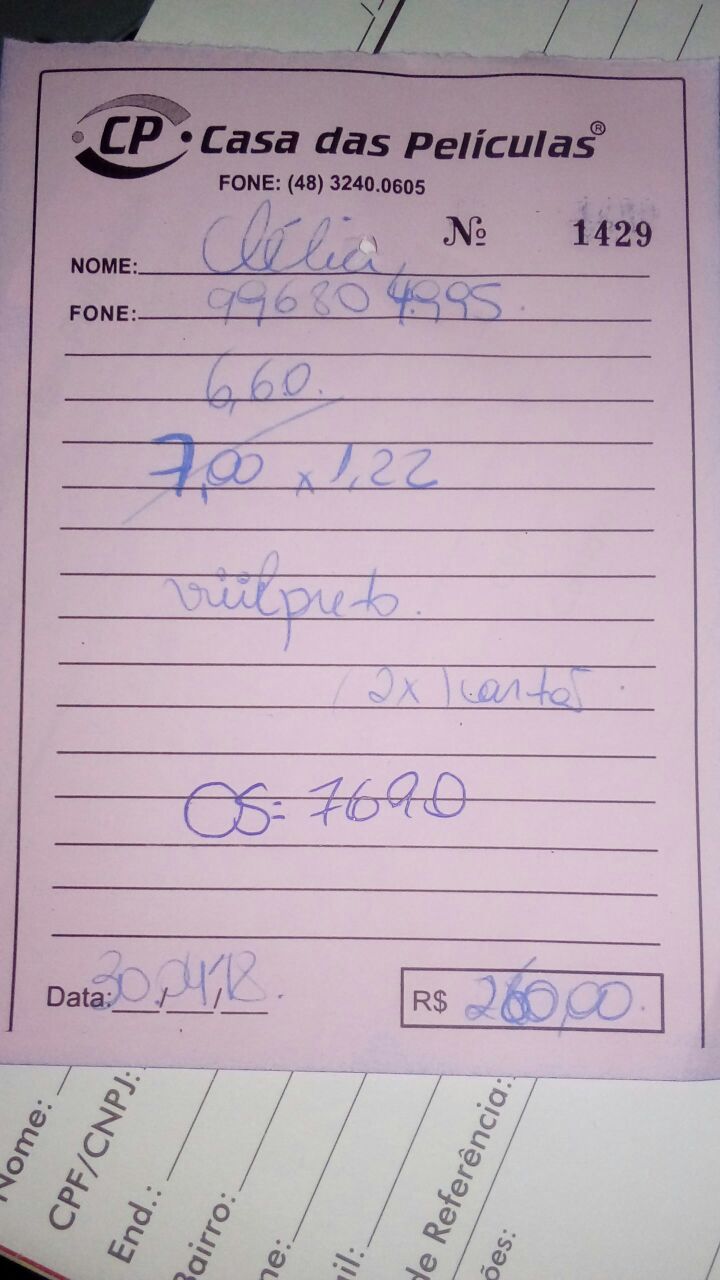 CP Casa das Películas®
FONE: (48) 3240.0605
Nº 1429
NOME: Clélia
FONE: 996804995
6,60.
7,00 x 1,22
preto.
(2x) cartão
OS= 7690
Data: 30/04/18.
R$ 260,00
Nome:
CPF/CNPJ:
End.:
Bairro:
de Referência: